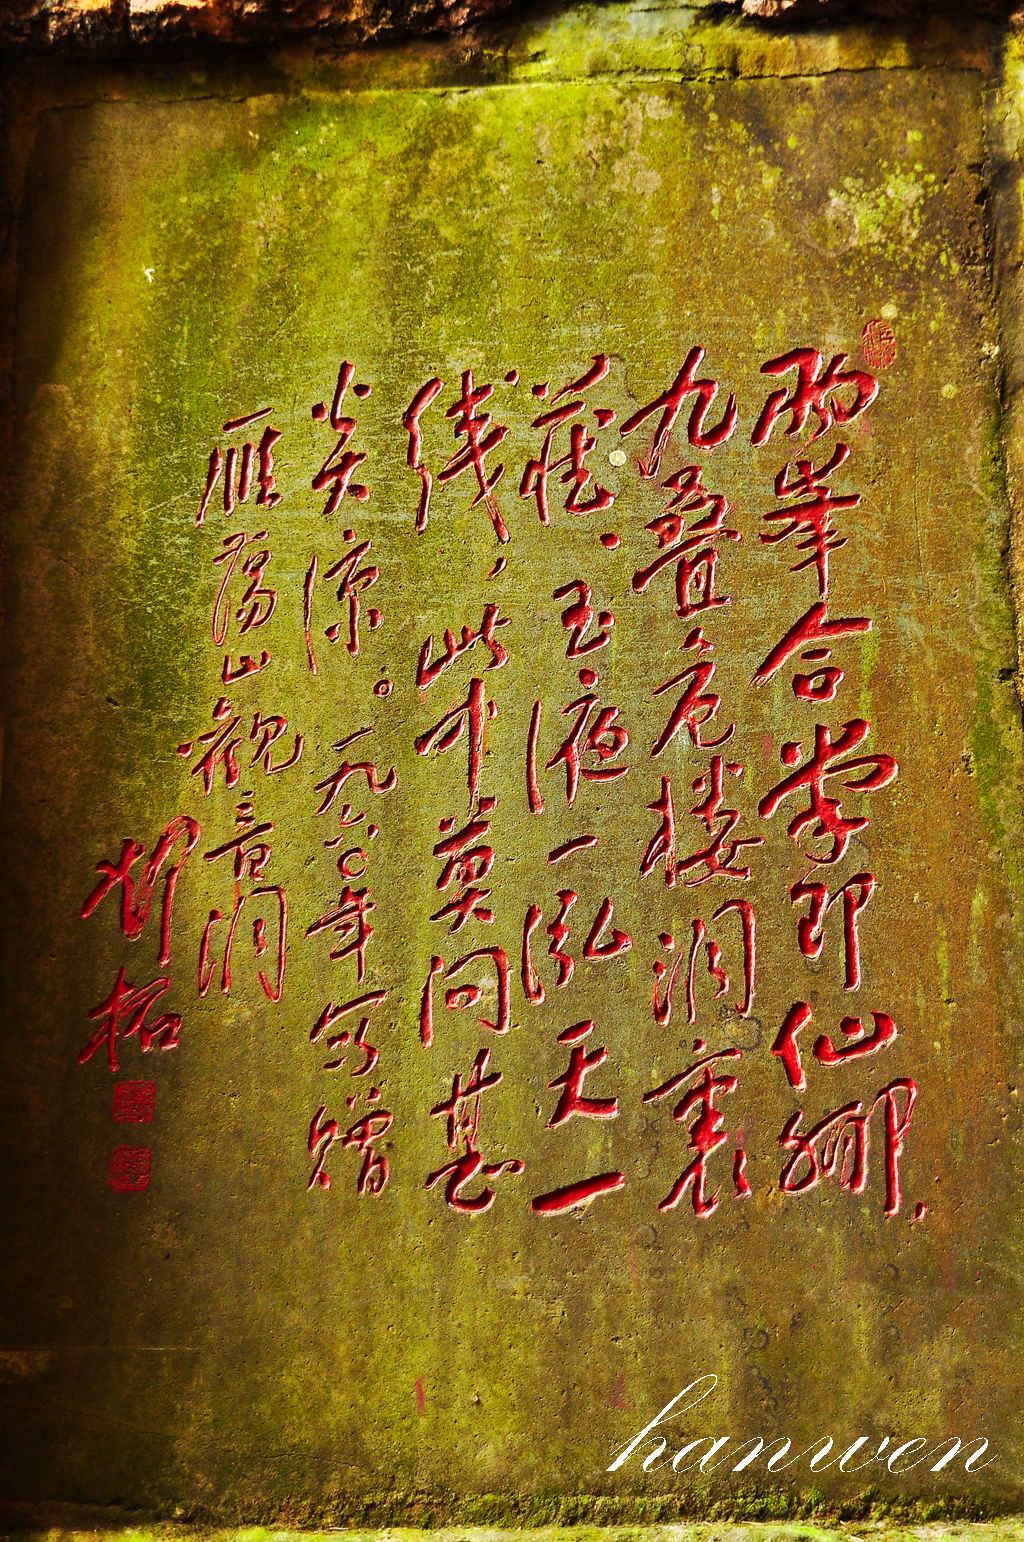 两峯合掌即仙乡,
九叠危楼洞裏
藏。玉液一泓天一
线,此中莫问甚
炎凉。一九六〇年写赠
雁荡山观音洞
邓拓
hanwen